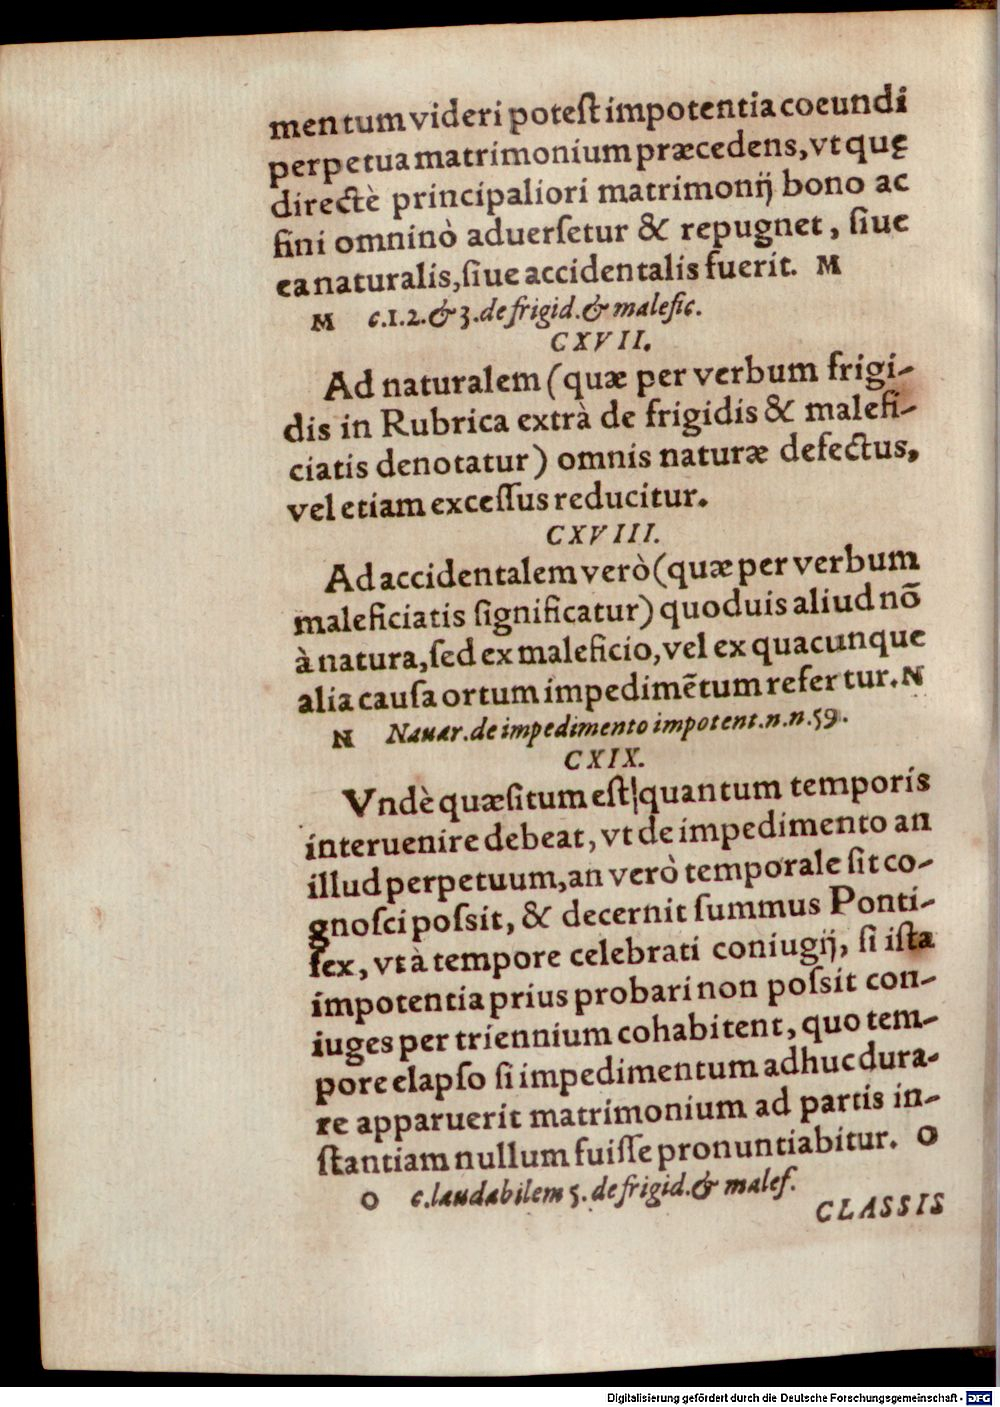 mentum videri potest impotentia coeundi
perpetua matrimonium præcedens, vt quę
directè principaliori matrimonij bono ac
fini omninò aduerſetur & repugnet, ſiue
ea naturalis, ſiue accidentalis fuerit. M
M c.1.2.& 3. de frigid. & malefic.
CXVII.
Ad naturalem (quæ per verbum frigi-
dis in Rubrica extrà de frigidis & malefi-
ciatis denotatur) omnis naturæ defectus,
vel etiam exceſſus reducitur.
CXVIII.
Ad accidentalem verò (quæ per verbum
maleficiatis ſignificatur) quoduis aliud nõ
à natura, ſed ex maleficio, vel ex quacunque
alia cauſa ortum impedimẽtum refertur. N
N Nauar. de impedimento impotent. n. n. 59.
CXIX.
Vndè quæſitum eſt quantum temporis
interuenire debeat, vt de impedimento an
illud perpetuum, an verò temporale ſit co-
gnoſci poſsit, & decernit ſummus Ponti-
fex, vt à tempore celebrati coniugij, ſi iſta
impotentia prius probari non poſsit con-
iuges per triennium cohabitent, quo tem-
pore elapſo ſi impedimentum adhuc dura-
re apparuerit matrimonium ad partis in-
ſtantiam nullum fuiſſe pronuntiabitur. O
O c. laudabilem 5. de frigid. & maleſ.
CLASSIS
Digitalisierung gefördert durch die Deutsche Forschungsgemeinschaft - DFG